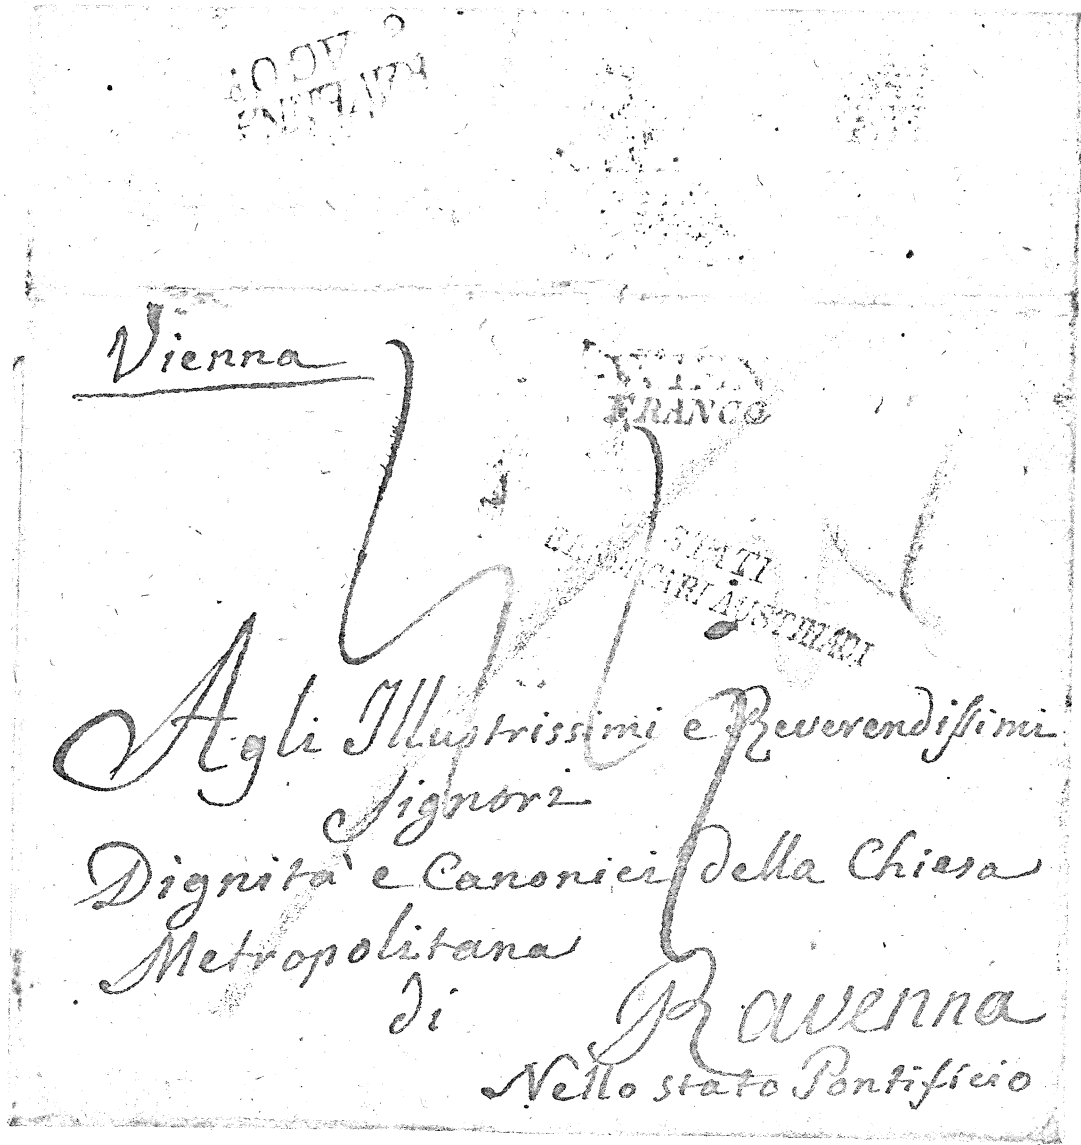 Vienna
FRANCO
STATI
AUSTRIACI
Agli Illustrissimi e Reverendissimi
Signori
Dignità e Canonici della Chiesa
Metropolitana
di Ravenna
Nello stato Pontificio